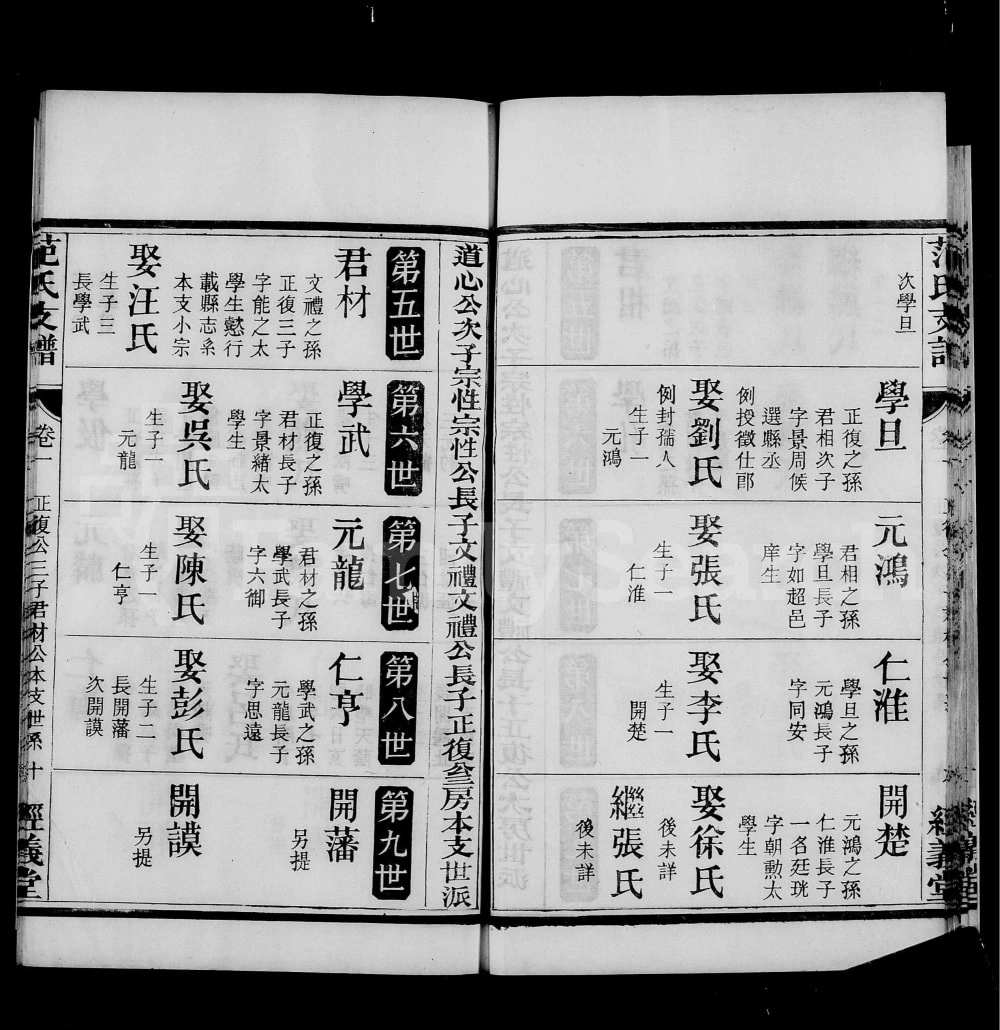 次學旦
學旦
正復之孫
君相次子
字景周候
選縣丞
例授徵仕郎
娶劉氏
例封孺人
生子一
元鴻
元鴻
君相之孫
學旦長子
字如超邑
庠生
娶張氏
生子一
仁淮
仁淮
學旦之孫
元鴻長子
字同安
娶李氏
生子一
開楚
開楚
元鴻之孫
仁淮長子
一名廷珖
字朝勲太
學生
娶徐氏
後未詳
繼張氏
後未詳
道心公次子宗性宗性公長子文禮文禮公長子正復公三房本支世派
第五世
君材
文禮之孫
正復三子
字能之太
學生懿行
載縣志系
本支小宗
娶汪氏
生子三
長學武
第六世
學武
正復之孫
君材長子
字景緒太
學生
娶吳氏
生子一
元龍
第七世
元龍
君材之孫
學武長子
字六御
娶陳氏
生子一
仁亨
第八世
仁亨
學武之孫
元龍長子
字思遠
娶彭氏
生子二
長開藩
次開謨
第九世
開藩
另提
開謨
另提
范氏支譜
卷一
正復公三子君材公本支世系
十
經義堂